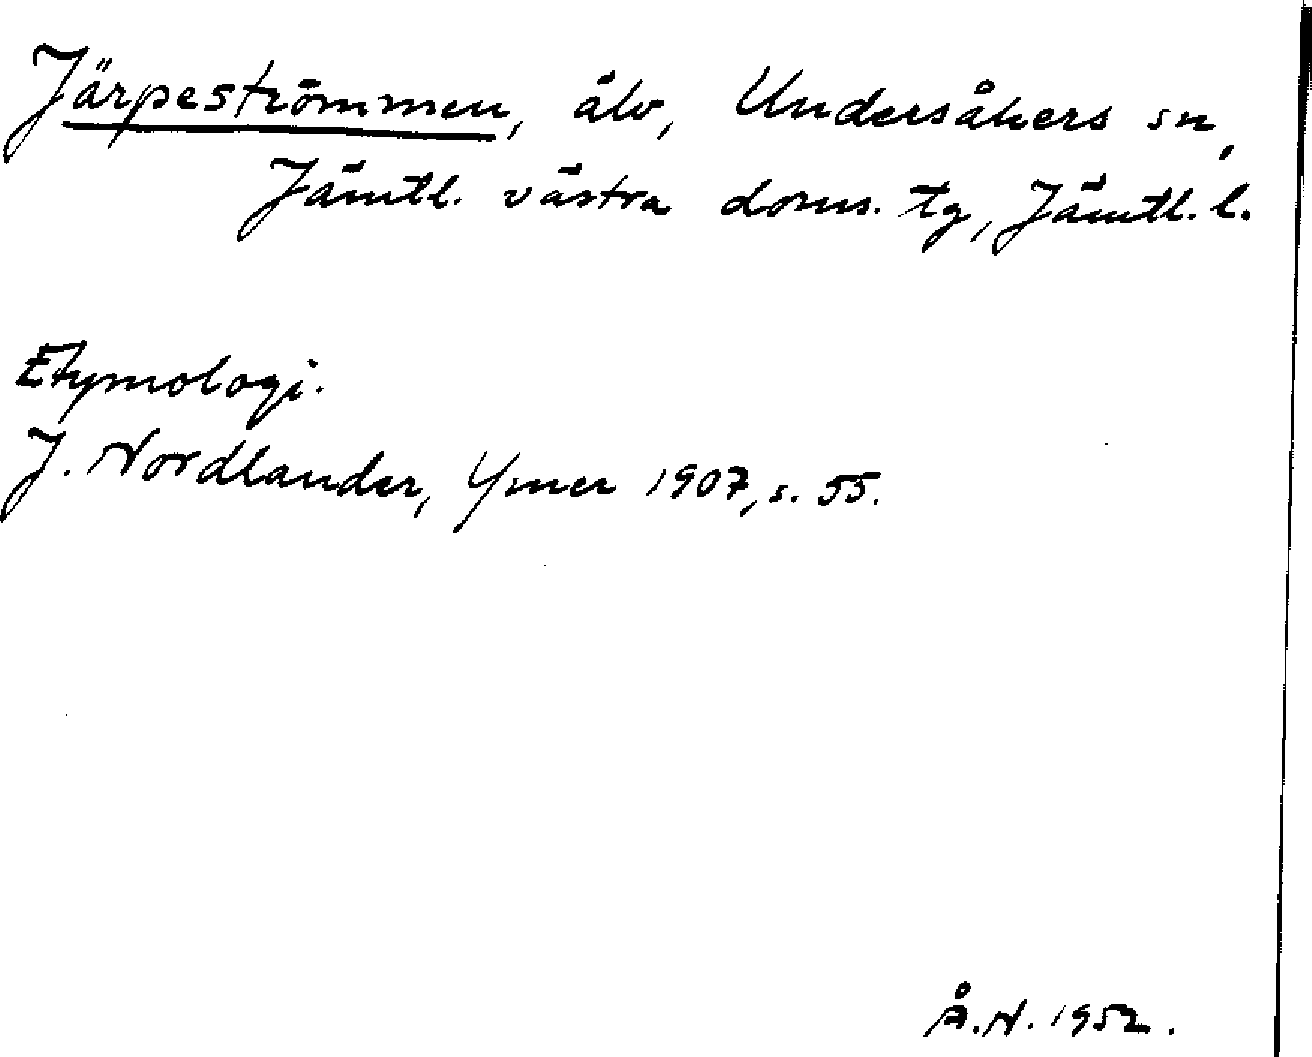 Järpeströmmen, älv, Undersåkers sn,
Jämtl. västra doms. tg, Jämtl. l.
Etymologi.
J. Nordlander, Ymer 1907, s. 55.
Å.N. 1952.